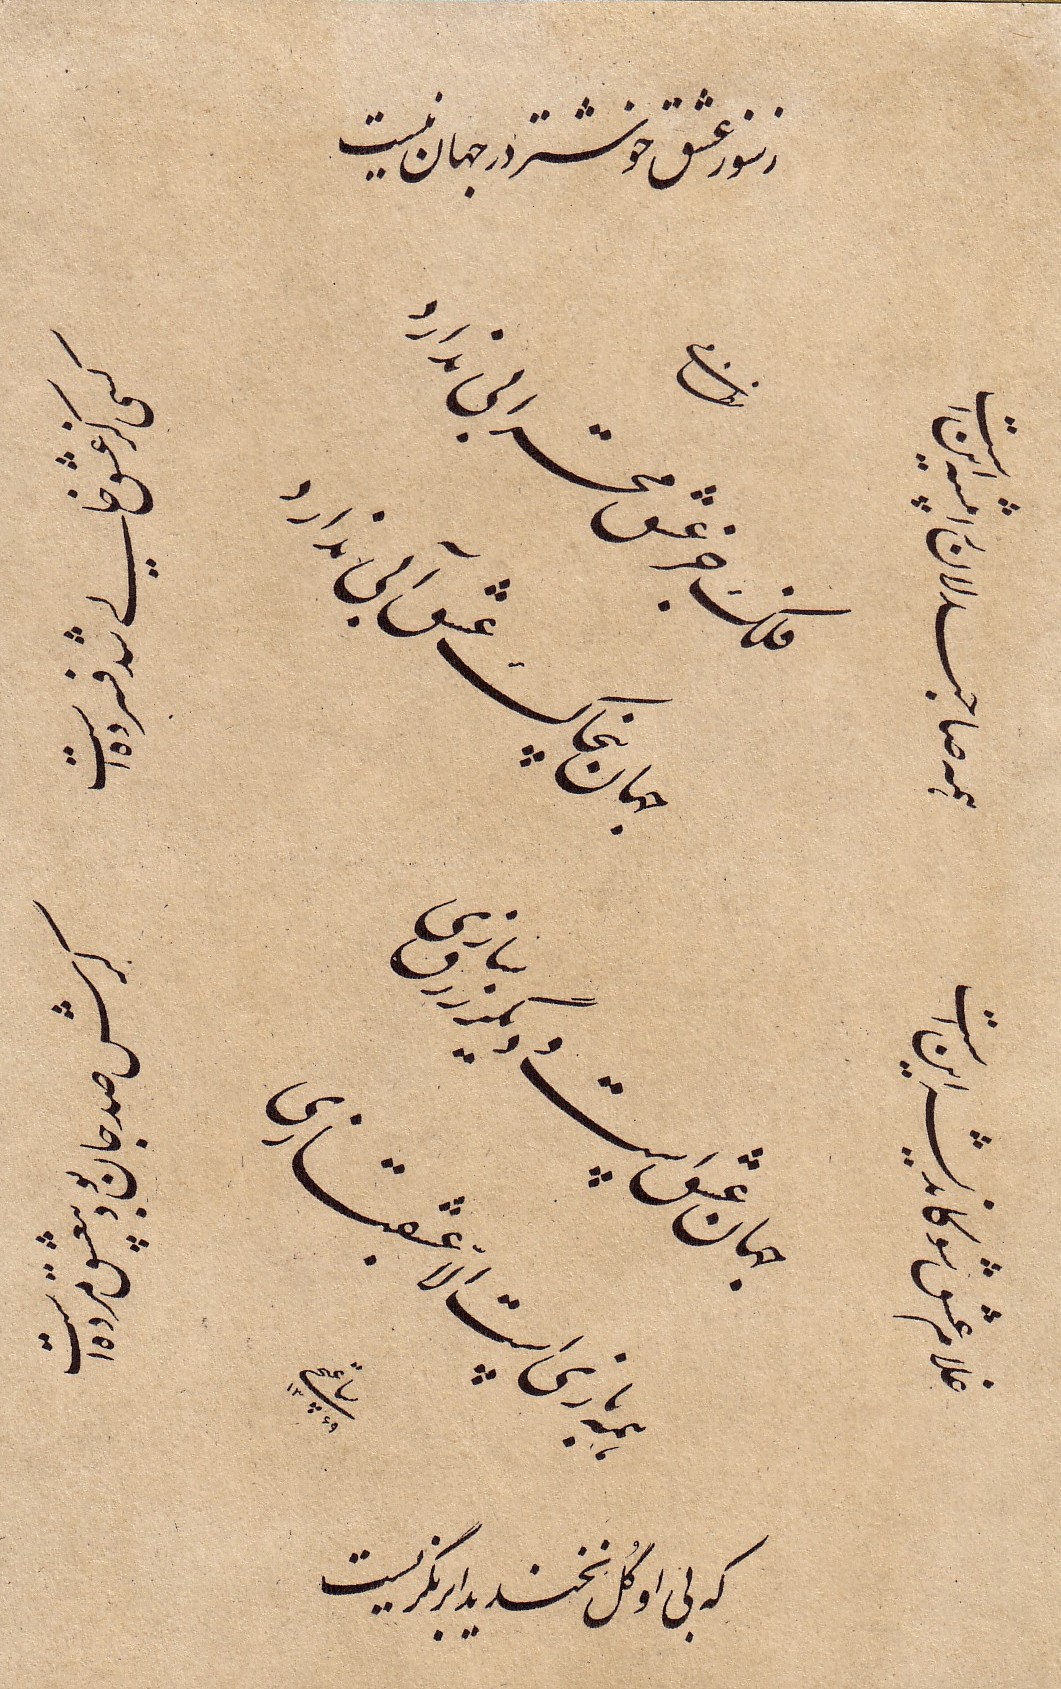 ز سوز عشق خوشتر در جهان نیست
نظامی
فلک جز عشق محرابی ندارد
جهان بی خاک عشق آبی ندارد
همه صاحبدلان را پیشه این است
غلام عشق شو کاندیشه این است
کسی کز عشق خالی شد فسرده است
گرش صد جان بود بی عشق مرده است
جهان عشق است و دیگر زرق بازی
همه بازی است الا عشقبازی
که بی او گل نخندید ابر نگریست